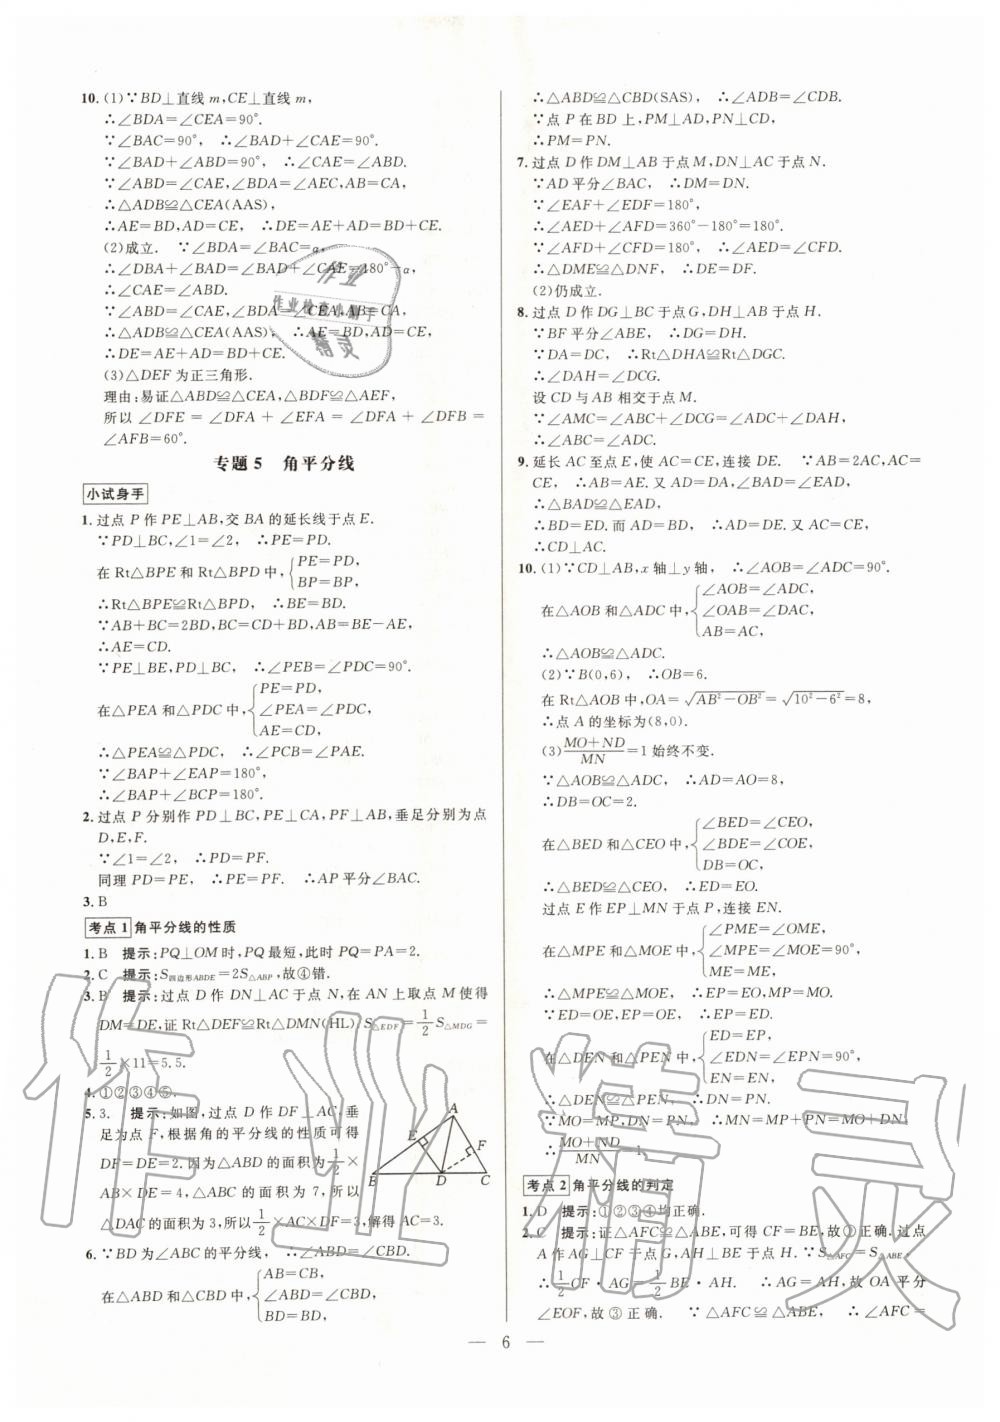 10. (1)∵BD⊥直线 m,CE⊥直线 m,
∴∠BDA=∠CEA=90°.
∵∠BAC=90°, ∴∠BAD+∠CAE=90°.
∵∠BAD+∠ABD=90°, ∴∠CAE=∠ABD.
∵∠ABD=∠CAE,∠BDA=∠AEC,AB=CA,
∴△ADB≌△CEA(AAS),
∴AE=BD,AD=CE, ∴DE=AE+AD=BD+CE.
(2)成立. ∵∠BDA=∠BAC=α,
∴∠DBA+∠BAD=∠BAD+∠CAE=180°-α,
∴∠CAE=∠ABD.
∵∠ABD=∠CAE,∠BDA=∠CEA,AB=CA,
∴△ADB≌△CEA(AAS), ∴AE=BD,AD=CE,
∴DE=AE+AD=BD+CE.
(3)△DEF 为正三角形.
理由:易证△ABD≌△CEA,△BDF≌△AEF,
所以 ∠DFE = ∠DFA + ∠EFA = ∠DFA + ∠DFB =
∠AFB=60°.
专题 5 角平分线
小试身手
1. 过点 P 作 PE⊥AB,交 BA 的延长线于点 E.
∵PD⊥BC,∠1=∠2, ∴PE=PD.
在 Rt△BPE 和 Rt△BPD 中,{PE=PD,
BP=BP,
∴Rt△BPE≌Rt△BPD, ∴BE=BD.
∵AB+BC=2BD,BC=CD+BD,AB=BE-AE,
∴AE=CD.
∵PE⊥BE,PD⊥BC, ∴∠PEB=∠PDC=90°.
在△PEA 和△PDC 中,{PE=PD,
∠PEA=∠PDC,
AE=CD,
∴△PEA≌△PDC, ∴∠PCB=∠PAE.
∵∠BAP+∠EAP=180°,
∴∠BAP+∠BCP=180°.
2. 过点 P 分别作 PD⊥BC,PE⊥CA,PF⊥AB,垂足分别为点
D,E,F.
∵∠1=∠2, ∴PD=PF.
同理 PD=PE, ∴PE=PF. ∴AP 平分∠BAC.
3. B
考点 1 角平分线的性质
1. B 提示:PQ⊥OM 时,PQ 最短,此时 PQ=PA=2.
2. C 提示:S四边形ABDE=2S△ABP,故④错.
3. B 提示:过点 D 作 DN⊥AC 于点 N,在 AN 上取点 M 使得
DM=DE,证 Rt△DEF≌Rt△DMN(HL),S△EDF=1/2 S△MDG=
1/2×11=5.5.
4. ①②③④⑤.
5. 3. 提示:如图,过点 D 作 DF⊥AC,垂
足为点 F,根据角的平分线的性质可得
DF=DE=2.因为△ABD 的面积为1/2×
AB×DE=4,△ABC 的面积为 7,所以
△DAC的面积为3,所以1/2×AC×DF=3,解得 AC=3.
A
E
F
B
D
C
6. ∵BD 为∠ABC 的平分线, ∴∠ABD=∠CBD.
在△ABD 和△CBD 中,{AB=CB,
∠ABD=∠CBD,
BD=BD,
∴△ABD≌△CBD(SAS), ∴∠ADB=∠CDB.
∵点 P 在 BD 上,PM⊥AD,PN⊥CD,
∴PM=PN.
7. 过点 D 作 DM⊥AB 于点 M,DN⊥AC 于点 N.
∵AD 平分∠BAC, ∴DM=DN.
∵∠EAF+∠EDF=180°,
∴∠AED+∠AFD=360°-180°=180°.
∵∠AFD+∠CFD=180°, ∴∠AED=∠CFD.
∴△DME≌△DNF, ∴DE=DF.
(2)仍成立.
8. 过点 D 作 DG⊥BC 于点 G,DH⊥AB 于点 H.
∵BF 平分∠ABE, ∴DG=DH.
∵DA=DC, ∴Rt△DHA≌Rt△DGC.
∴∠DAH=∠DCG.
设 CD 与 AB 相交于点 M.
∵∠AMC=∠ABC+∠DCG=∠ADC+∠DAH,
∴∠ABC=∠ADC.
9. 延长 AC 至点 E,使 AC=CE,连接 DE. ∵AB=2AC,AC=
CE, ∴AB=AE.又∵AD=DA,∠BAD=∠EAD,
∴△BAD≌△EAD,
∴BD=ED.而 AD=BD, ∴AD=DE.又 AC=CE,
∴CD⊥AC.
10. (1)∵CD⊥AB,x 轴⊥y 轴, ∴∠AOB=∠ADC=90°.
在△AOB 和△ADC 中,{∠AOB=∠ADC,
∠OAB=∠DAC,
AB=AC,
∴△AOB≌△ADC.
(2)∵B(0,6), ∴OB=6.
在 Rt△AOB 中,OA=√(AB²-OB²)=√(10²-6²)=8,
∴点 A 的坐标为(8,0).
(3)(MO+ND)/MN=1 始终不变.
∵△AOB≌△ADC, ∴AD=AO=8,
∴DB=OC=2.
在△BED 和△CEO 中,{∠BED=∠CEO,
∠BDE=∠COE,
DB=OC,
∴△BED≌△CEO, ∴ED=EO.
过点 E 作 EP⊥MN 于点 P,连接 EN.
在△MPE 和△MOE 中,{∠PME=∠OME,
∠MPE=∠MOE=90°,
ME=ME,
∴△MPE≌△MOE, ∴EP=EO,MP=MO.
∵ED=OE,PE=OE, ∴EP=ED.
在△DEN 和△PEN 中,{ED=EP,
∠EDN=∠EPN=90°,
EN=EN,
∴△DEN≌△PEN, ∴DN=PN.
∵MO=MP,DN=PN, ∴MN=MP+PN=MO+DN.
∴(MO+ND)/MN=1.
考点 2 角平分线的判定
1. D 提示:①②③④均正确.
2. C 提示:证△AFC≌△ABE,可得 CF=BE,故①正确.过点
A 作 AG⊥CF 于点 G,AH⊥BE 于点 H.∵S△AFC=S△ABE,
∴1/2CF·AG=1/2BE·AH. ∴AG=AH,故 OA 平分
∠EOF,故③正确. ∵△AFC≌△ABE, ∴∠AFC=
— 6 —
作业
作业检查小助手
精灵
作业精灵